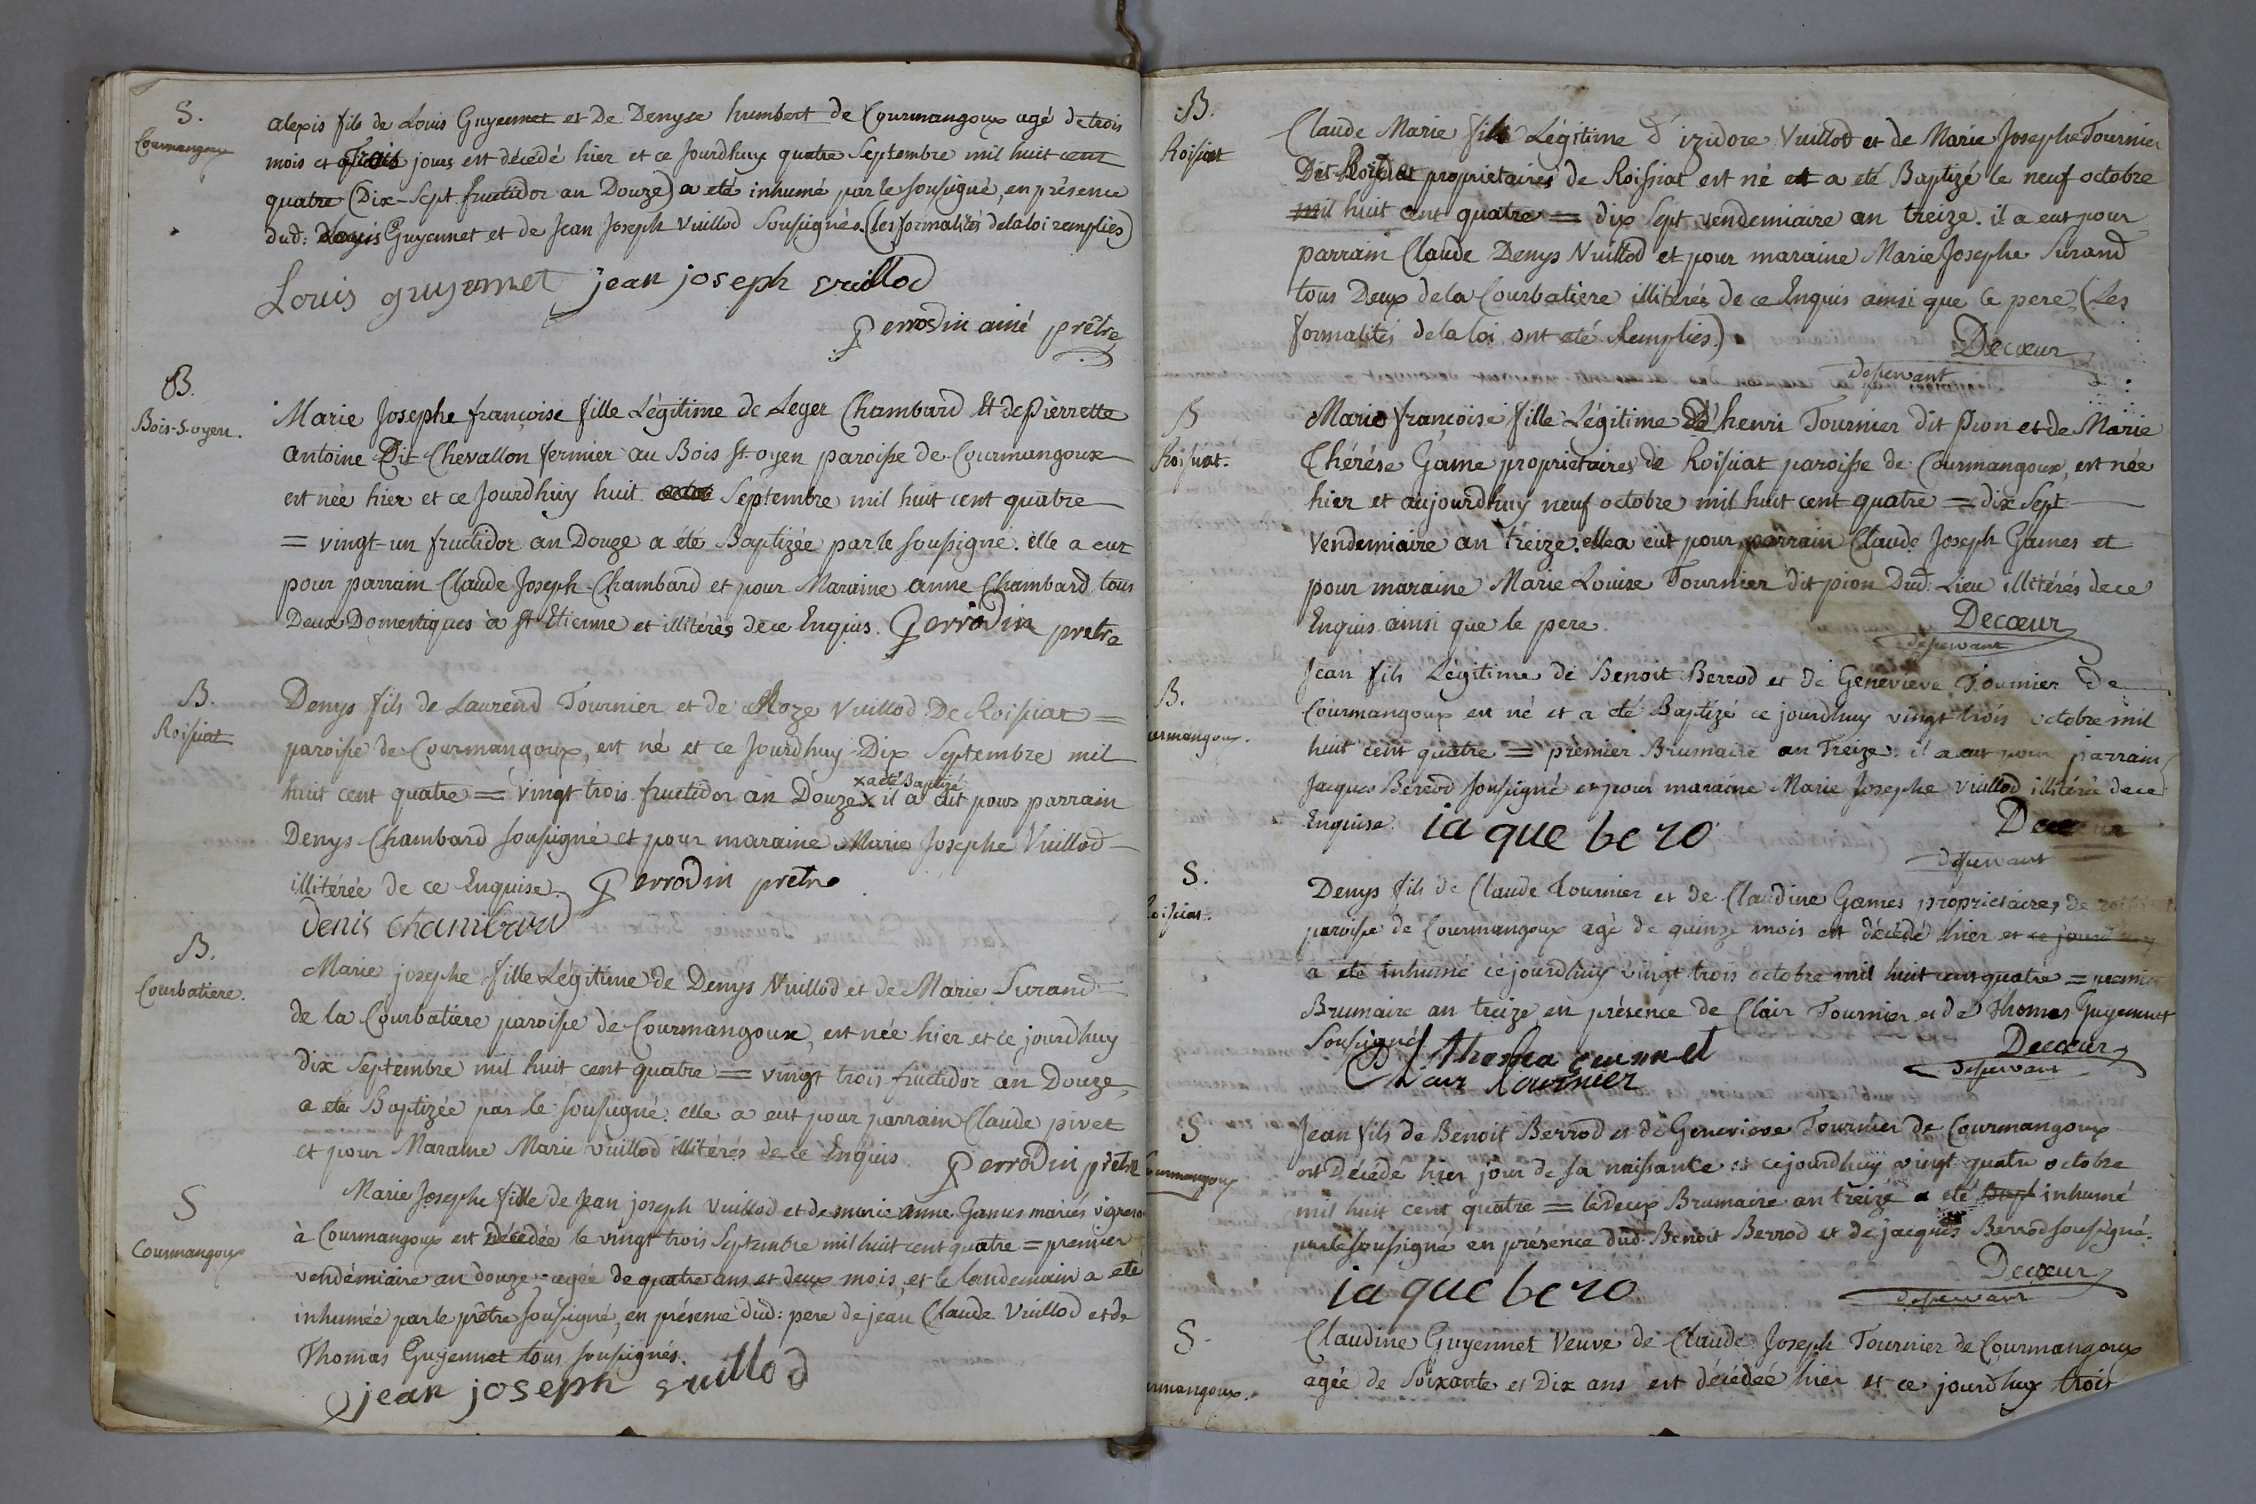 S.
Courmangoux
alexis fils de Louis Guyennet et De Denyse humbert de Courmangoux agé de trois
mois et jours est décédé hier et ce Jourdhuy quatre Septembre mil huit cent
quatre (Dix-Sept fructidor an Douze) a eté inhumé par le soussigné, en présence
dud: Louis Guyennet et de Jean Joseph Vuillod Soussignés. (les formalités de la loi remplies)
Louis guyennet jean joseph vuillod
Perrodin ainé prêtre
B.
Bois-S-oyen.
Marie Josephe françoise fille Légitime de Leger Chambard Et de Pierrette
antoine Dit Chevallon fermier au Bois st oyen paroisse de Courmangoux
est née hier et ce Jourdhuy huit Septembre mil huit cent quatre
= vingt-un fructidor an Douze a été Baptizée par le soussigné. elle a eut
pour parrain Claude Joseph Chambard et pour Maraine anne Chambard tous
Deux Domestiques à St Etienne et illitérés de ce Enquis. Perrodin pretre
B.
Roissiat
Denys fils de Laurend Tournier et de Roze Vuillod De Roissiat =
paroisse de Courmangoux, est né et ce Jourdhuy Dix Septembre mil
x a eté Baptizé
huit cent quatre = vingt trois fructidor an Douze x il a eut pour parrain
Denys Chambard soussigné et pour maraine Marie Josephe Vuillod
illitérée de ce Enquise. Perrodin pretre
Denis Chambard
B.
Courbatiere.
Marie josephe fille Légitime de Denys Vuillod et de Marie Surand
de la Courbatiere paroisse de Courmangoux, est née hier et ce jourdhuy
dix Septembre mil huit cent quatre = vingt trois fructidor an Douze,
a eté Baptizée par le soussigné. elle a eut pour parrain Claude pivet
et pour Maraine Marie vuillod illitérés de ce Enquis. Perrodin prêtre
S
Courmangoux
Marie Josephe fille de Jean joseph Vuillod et de marie anne Games mariés
à Courmangoux est décédée le vingt trois Septembre mil huit cent quatre = premier
vendémiaire an douze, agée de quatre ans et deux mois, et le landemain a eté
inhumée par le prêtre soussigné, en présence dud: pere de jean Claude Vuillod et de
Thomas Guyennet tous soussignés.
jean joseph vuillod
B.
Roissiat
Claude Marie fils Légitime D'izidore Vuillod et de Marie Josephe Tournier
Dit propriétaires de Roissiat est né et a eté Baptizé le neuf octobre
mil huit cent quatre = dix sept vendemiaire an treize. il a eut pour
parrain Claude Denys Vuillod et pour maraine Marie Josephe Surand
tous Deux de la Courbatiere illitérés de ce Enquis ainsi que le pere, (Les
formalités de la loi ont eté Remplies.)
Decœur
desservant
B
Roissiat.
Marie françoise fille Légitime D'henri Tournier dit Pion et de Marie
Thérése Game propriétaires de Roissiat paroisse de Courmangoux, est née
hier et aujourdhuy neuf octobre mil huit cent quatre = dix sept
Vendemiaire an treize. elle a eut pour parrain Claude Joseph Games et
pour maraine Marie Louise Tournier dit pion Dud. Lieu illitérés de ce
Enquis ainsi que le pere.
Decœur
desservant
B.
urmangoux.
Jean fils Légitime de Benoit Berrod et de Genevieve Tournier de
Courmangoux est né et a eté Baptizé ce jourdhuy vingt trois octobre mil
huit cent quatre = premier Brumaire an Treize. il a eut pour parrain
Jacques Berrod soussigné et pour maraine Marie Josephe Vuillod illitérée de ce
Enquise. iaque bero
Decœur
desservant
S.
oissiat.
Denys fils de Claude Tournier et de Claudine Games propriétaires de
paroisse de Courmangoux agé de quinze mois est décédé hier et ce jourdhuy
a eté inhumé ce jourdhuy vingt trois octobre mil huit cent quatre = premier
Brumaire an treize en présence de Clair Tournier et de Thomas Guyennet
Soussignés
Thoma guinnet
Clair Tournier
Decœur
desservant
S
Courmangoux
Jean fils de Benoit Berrod et de Genevieve Tournier de Courmangoux
est Décédé hier jour de sa naissance et ce jourdhuy vingt quatre octobre
mil huit cent quatre = le deux Brumaire an treize a eté inhumé
par le soussigné en présence dud. Benoit Berrod et de jacques Berrod soussigné.
iaque bero
Decœur
desservant
S.
urmangoux.
Claudine Guyennet Veuve de Claude Joseph Tournier de Courmangoux
agée de Soixante et Dix ans est décédée hier et ce jourdhuy trois